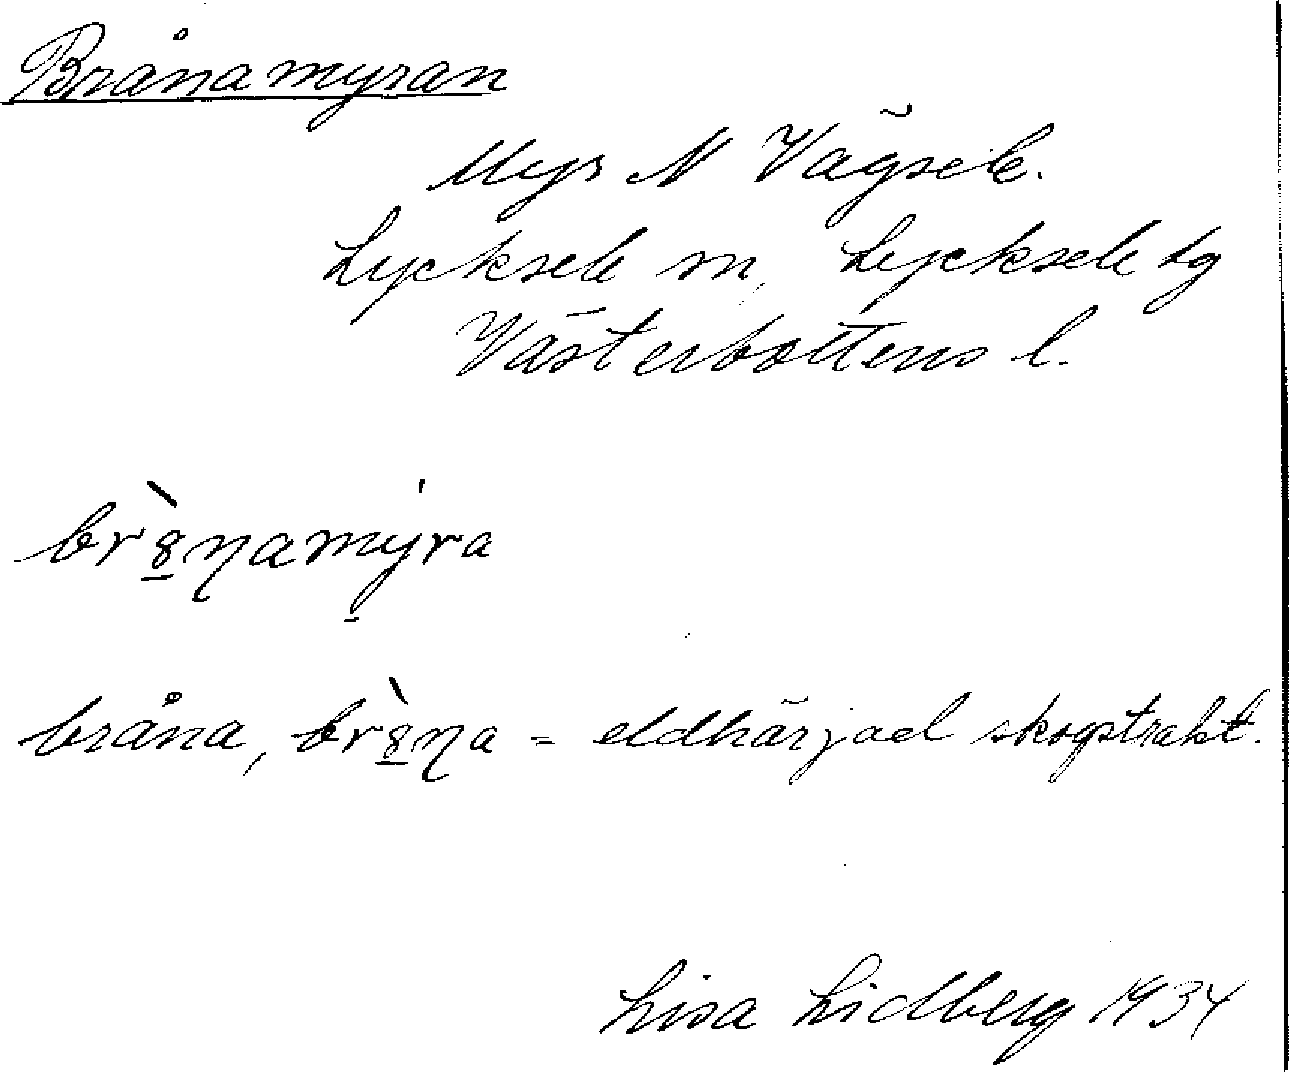 Brånamyran
Myr N Vägsele.
Lycksele sn, Lycksele lg
Västerbottens l.
br8̲̀ŋamy̠̍ra
bråna, br8̲̀ŋa = eldhärjad skogstrakt.
Lisa Lidberg 1934